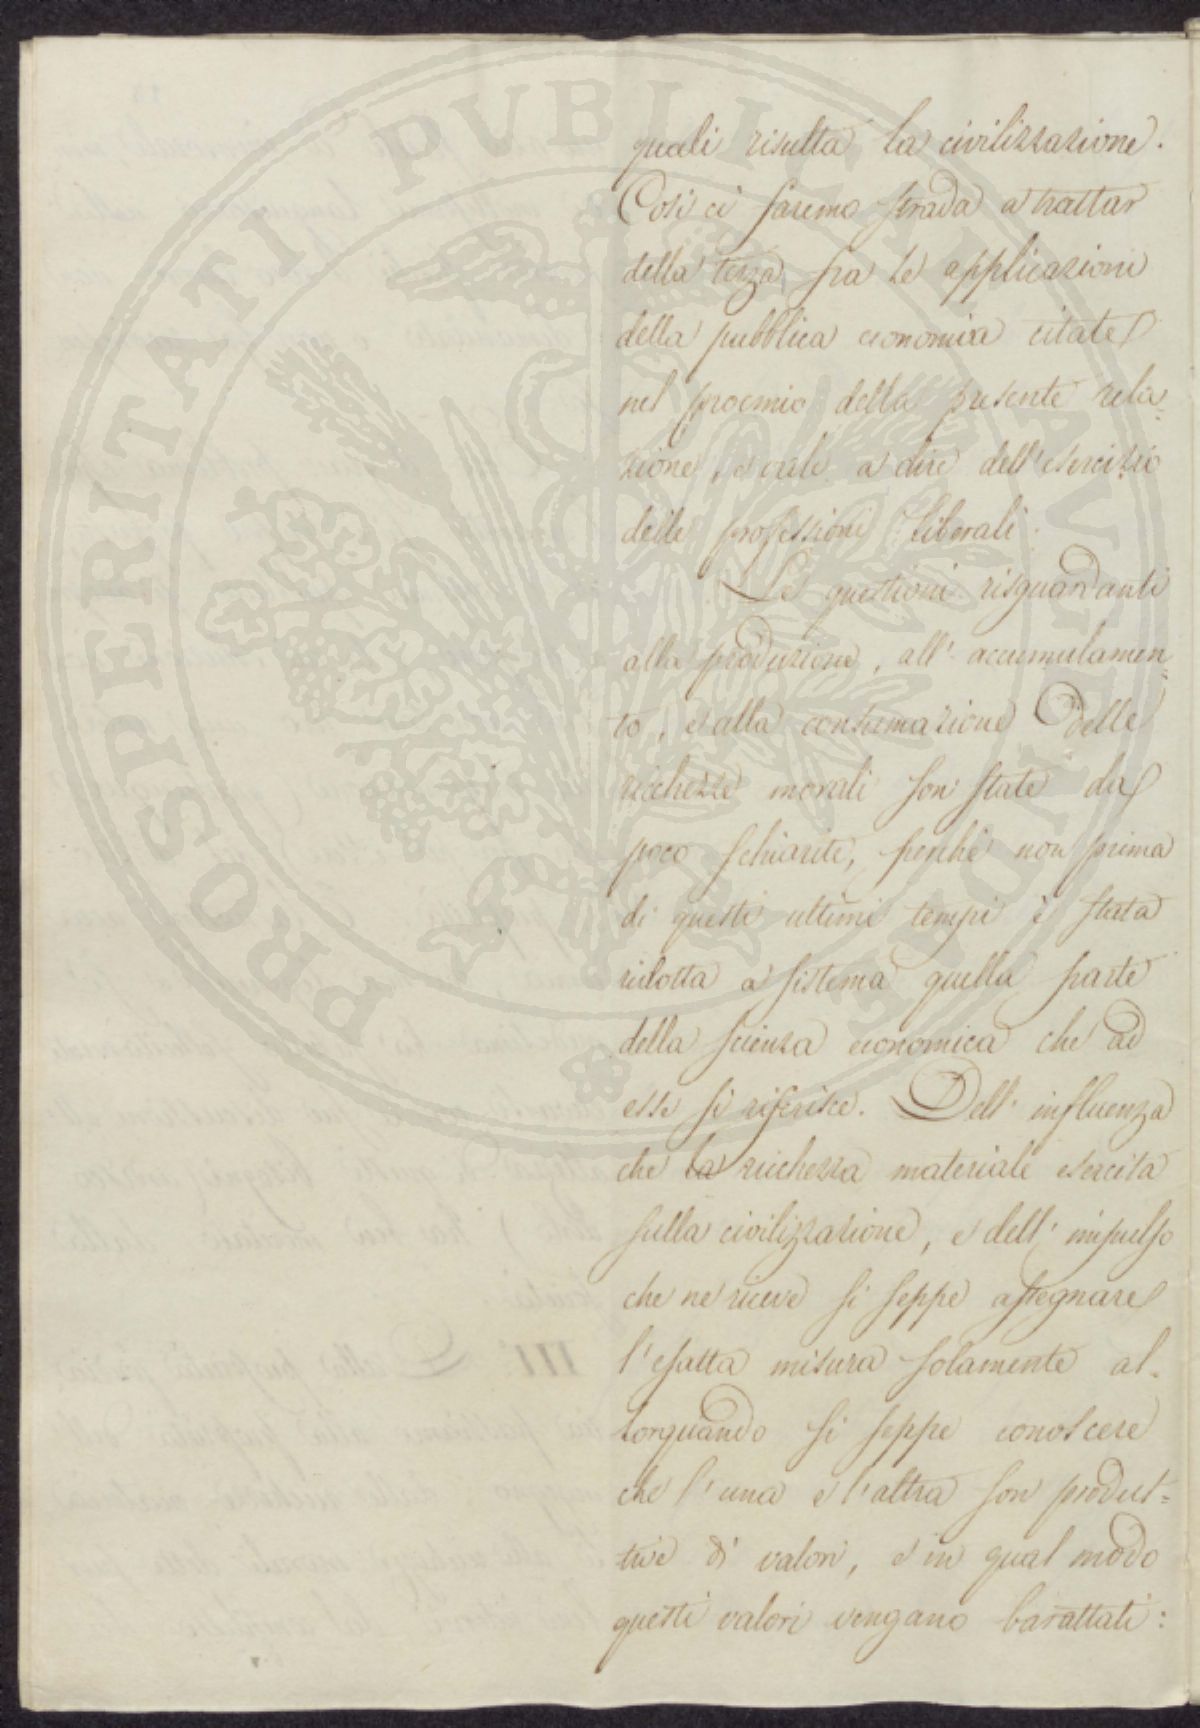 quali risulta la civilizzazione.
Così ci faremo strada a trattar
della terza fra le applicazioni
della pubblica economia citate
nel proemio della presente rela=
zione, e vale a dire dell'esercizio
delle professioni liberali.
Le questioni risguardanti
alla produzione, all'accumulamen=
to, e alla consumazione delle
ricchezze morali son state da
poco schiarite, perchè non prima
di questi ultimi tempi è stata
ridotta a sistema quella parte
della scienza economica che ad
esse si riferisce. Dell'influenza
che la ricchezza materiale esercita
sulla civilizzazione, e dell'impulso
che ne riceve si seppe assegnare
l'esatta misura solamente al=
lorquando si seppe conoscere
che l'una e l'altra son produt=
tive di valori, e in qual modo
questi valori vengano barattati:
PROSPERITATI PVBLICAE AVGENDAE